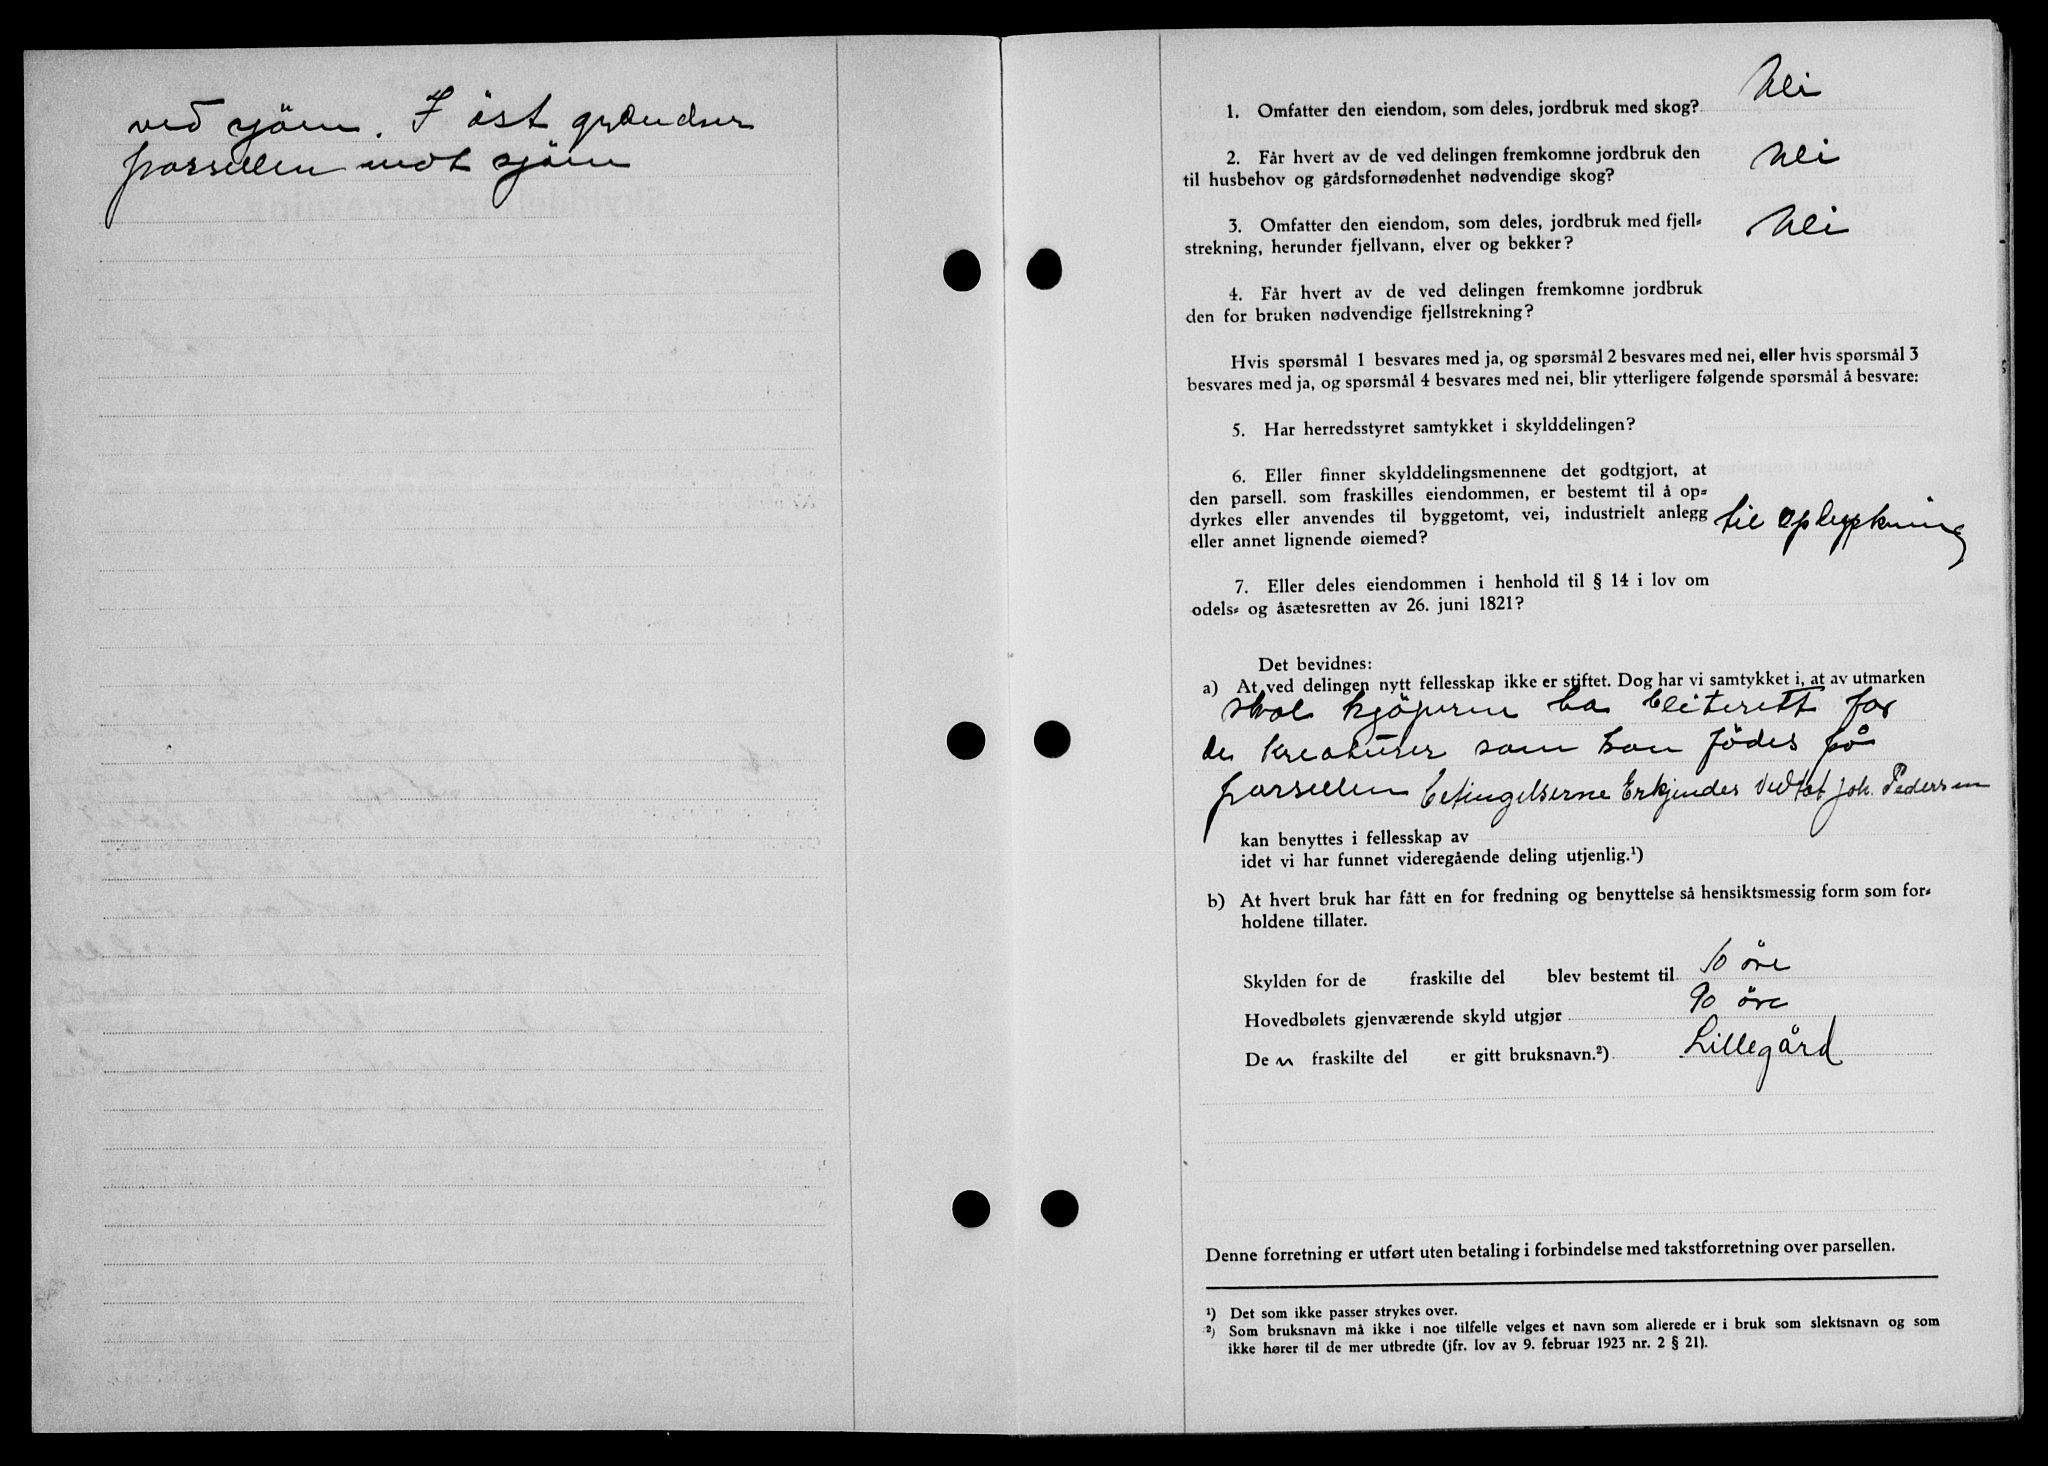 ved sjöen. I öst grændser
parsellen mot sjöen
1. Omfatter den eiendom, som deles, jordbruk med skog?
Nei
2. Får hvert av de ved delingen fremkomne jordbruk den
til husbehov og gårdsfornødenhet nødvendige skog?
Nei
3. Omfatter den eiendom, som deles, jordbruk med fjell-
strekning, herunder fjellvann, elver og bekker?
Nei
4. Får hvert av de ved delingen fremkomne jordbruk
den for bruken nødvendige fjellstrekning?
Hvis spørsmål 1 besvares med ja, og spørsmål 2 besvares med nei, eller hvis spørsmål 3
besvares med ja, og spørsmål 4 besvares med nei, blir ytterligere følgende spørsmål å besvare:
5. Har herredsstyret samtykket i skylddelingen?
6. Eller finner skylddelingsmennene det godtgjort, at
den parsell. som fraskilles eiendommen, er bestemt til å op-
dyrkes eller anvendes til byggetomt, vei, industrielt anlegg
eller annet lignende øiemed?
til
7. Eller deles eiendommen i henhold til § 14 i lov om
odels- og åsætesretten av 26. juni 1821?
Det bevidnes:
a) At ved delingen nytt fellesskap ikke er stiftet. Dog har vi samtykket i, at av utmarken
skal kjöperen ha beiterett for
de kreaturer som kan födes på
parsellen betingelserne Erkjendes Vedtat Joh. Pedersen
kan benyttes i fellesskap av
idet vi har funnet videregående deling utjenlig.¹)
b) At hvert bruk har fått en for fredning og benyttelse så hensiktsmessig form som for-
holdene tillater.
Skylden for de fraskilte del blev bestemt til 10 öre
Hovedbølets gjenværende skyld utgjør 90 öre
De n fraskilte del er gitt bruksnavn.²) Lillegård
Denne forretning er utført uten betaling i forbindelse med takstforretning over parsellen.
¹) Det som ikke passer strykes over.
²) Som bruksnavn må ikke i noe tilfelle velges et navn som allerede er i bruk som slektsnavn og som
ikke hører til de mer utbredte (jfr. lov av 9. februar 1923 nr. 2 § 21).